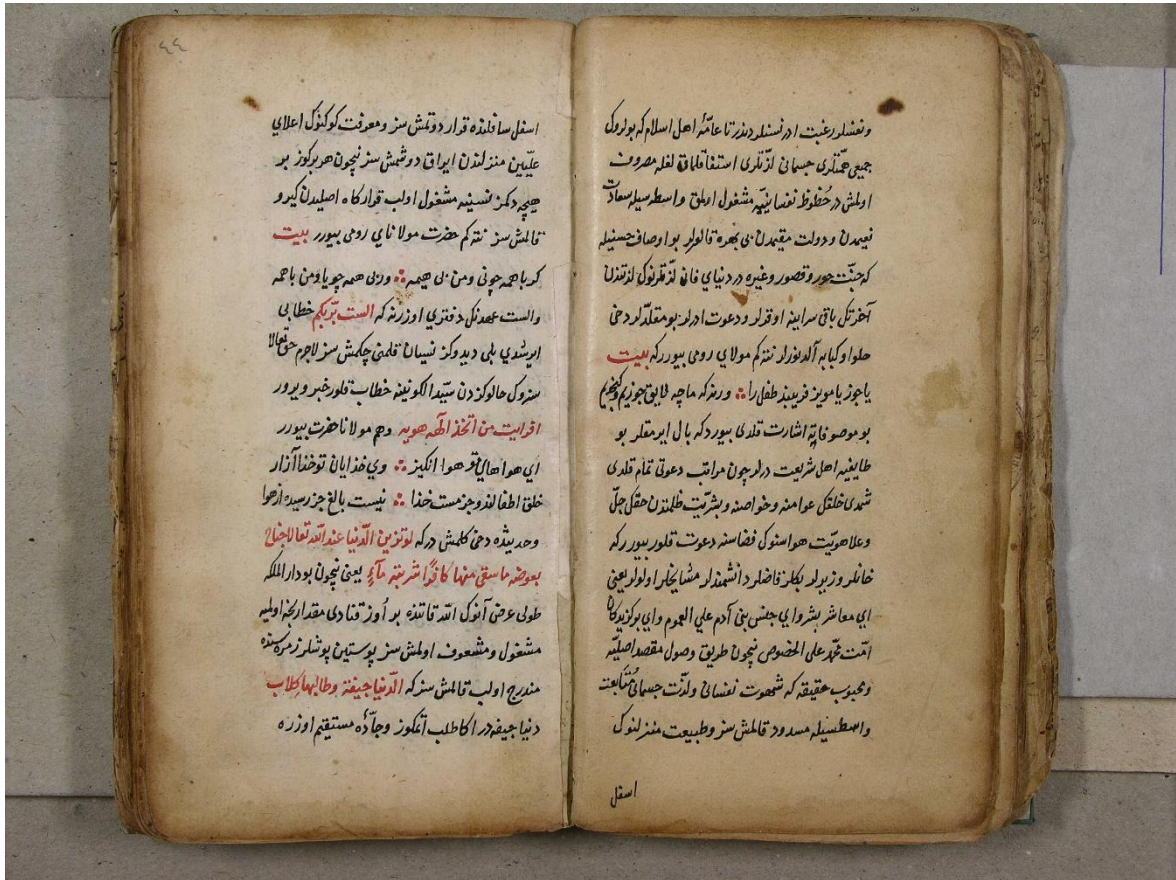 ونعمتلر رغبت ادر نسنلر دندر تا عامّۀ اهل اسلام كه بولروك
جميعى همّتلرى جسمانى لذّتلرى استفا قلماق لغله مصروف
اولمش در حُظوظ نفسانيّه مشغول اولمق واسطه سيله سعادت
نعيمدن و دولت مقيمدن بى بهره قالورلر بو اوصاف حسنيله
كه جنّت حور و قصور وغيره در دنياى فانى لذّتلرنوك لذتندن
آخرتك باقى سراينه اوقرلر و دعوت ادرلر بو مقلدلر دخى
حلوا و كبابه آلدنورلر نته كم مولاى رومى بيورر كه بيت
يا جوز يا مويز فريبند طفل را ورنه كه ما چه لايق جوزيم و كنجديم
بو موصوفاته اشارت قلدى بيوردكه بال اير مقلر بو
طايفيه اهل شريعت درلر چون مراقب دعوتى تمام قلدى
شمدى خلقك عوامنه وخواصنه و بشريّت ظلمتدن حقك جلّ
وعلا هويّت هواسنوك فضاسنه دعوت قلور بيورر كه
خانلر وزيرلر بكلر فاضلر دانشمندلر مشايخلر اولولر يعنى
اى معاشر بشر و اى جنس بنى آدم على العموم و اى بركزيدكان
امّت محمّد على الخصوص نيچون طريق وصول مقصد اصليّه
ومحبوب حقيقيه كه شهوت نفسانى ولذّت جسمانى متابعت
واسطسيله مسدود قالمش سز و طبيعت منزلنوك
اسفل
٤٤
اسفل سافلنده قرار دوتمش سز و معرفت كوكنوك اعلاى
علّيين منزلندن ايراق دوشمش سز نيچون هر بركوز بر
هيچه دكمز نسنيه مشغول اولب قراركاه اصليدن كيرو
قالمش سز نته كم حضرت مولاناى رومى بيورر بيت
كر با همه چونى و من بى همه وربى همه چو با من با همه
والست عهدنك دفترى اوزرنه كه الست بربكم خطابى
ايرشدى بلى ديدوكز نسيان قلمنى چكمش سز لاجرم حق تعالا
سزوك حالوكزدن سيّد الكونينه خطاب قلور خبر ويرور
افرايت من اتخذ الهه هويه وهم مولانا حضرت بيورر
اى هواهاى تو هوا انكيز وى خدايان تو خدا آزار
خلق اطفالند و جز مست خدا نيست بالغ جز رسيده از هوا
وحديثده دخى كلمش در كه لو تزين الدنيا عند الله تعالا جناح
بعوضه ما سقى منها كافرًا شربة ماءٍ يعنى نيچون بو دار الملكه
طولى عرضى آنوك الله قاتنده بر اُوز قنادى مقدارنجه اولميه
مشغول ومشعوف اولمش سز پوستين پوشلر زمره سنده
مندرج اولب قالمش سز كه الدّنيا جيفة وطالبها كلاب
دنيا جيفه در اكا طلب اتمكوز وجادّه مستقيم اوزره